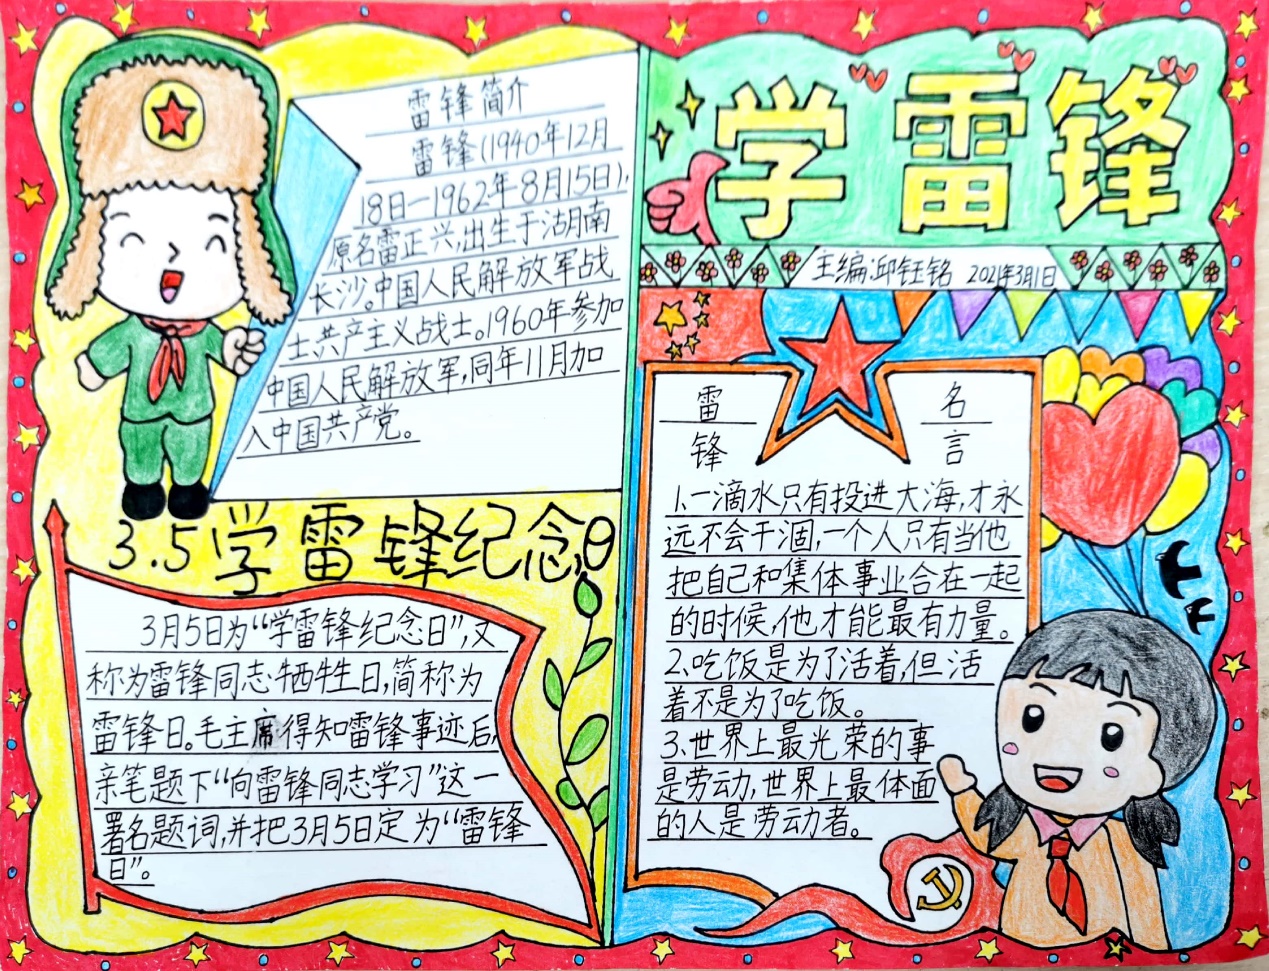 雷锋简介
雷锋(1940年12月
18日—1962年8月15日),
原名雷正兴,出生于湖南
长沙。中国人民解放军战
士共产主义战士。1960年参加
中国人民解放军,同年11月加
入中国共产党。
3.5学雷锋纪念日
3月5日为“学雷锋纪念日”,又
称为雷锋同志牺牲日,简称为
雷锋日。毛主席得知雷锋事迹后,
亲笔题下“向雷锋同志学习”这一
署名题词,并把3月5日定为“雷锋
日”。
学雷锋
主编:邱钰铭 2021年3月1日
雷锋
名言
1.一滴水只有投进大海,才永
远不会干涸,一个人只有当他
把自己和集体事业合在一起
的时候,他才能最有力量。
2.吃饭是为了活着,但活
着不是为了吃饭。
3.世界上最光荣的事
是劳动,世界上最体面
的人是劳动者。